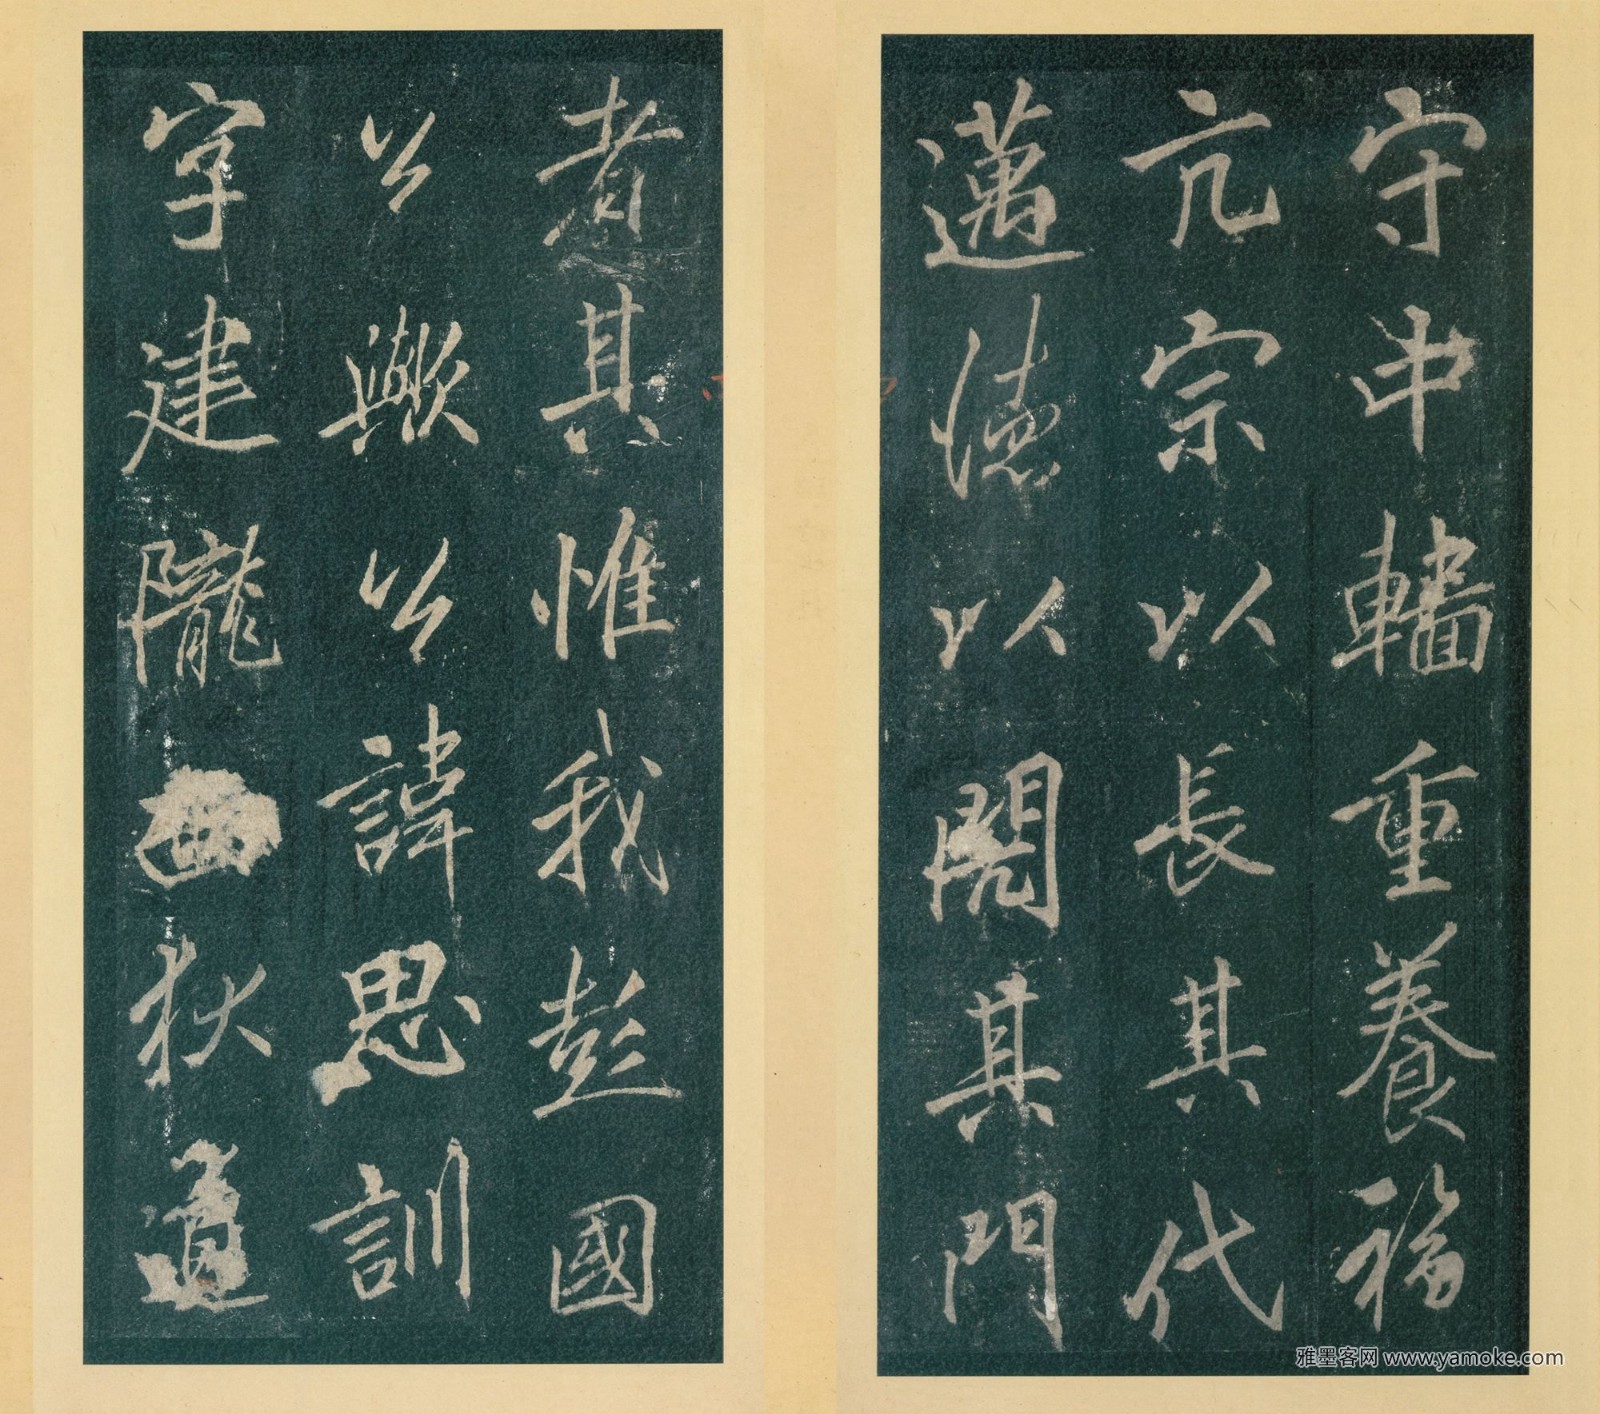 守中轖重養福
亢宗以長其代
邁德以闊其門
者其惟我彭國
公歟公諱思訓
字建隴西狄道
雅墨客网 www.yamoke.com